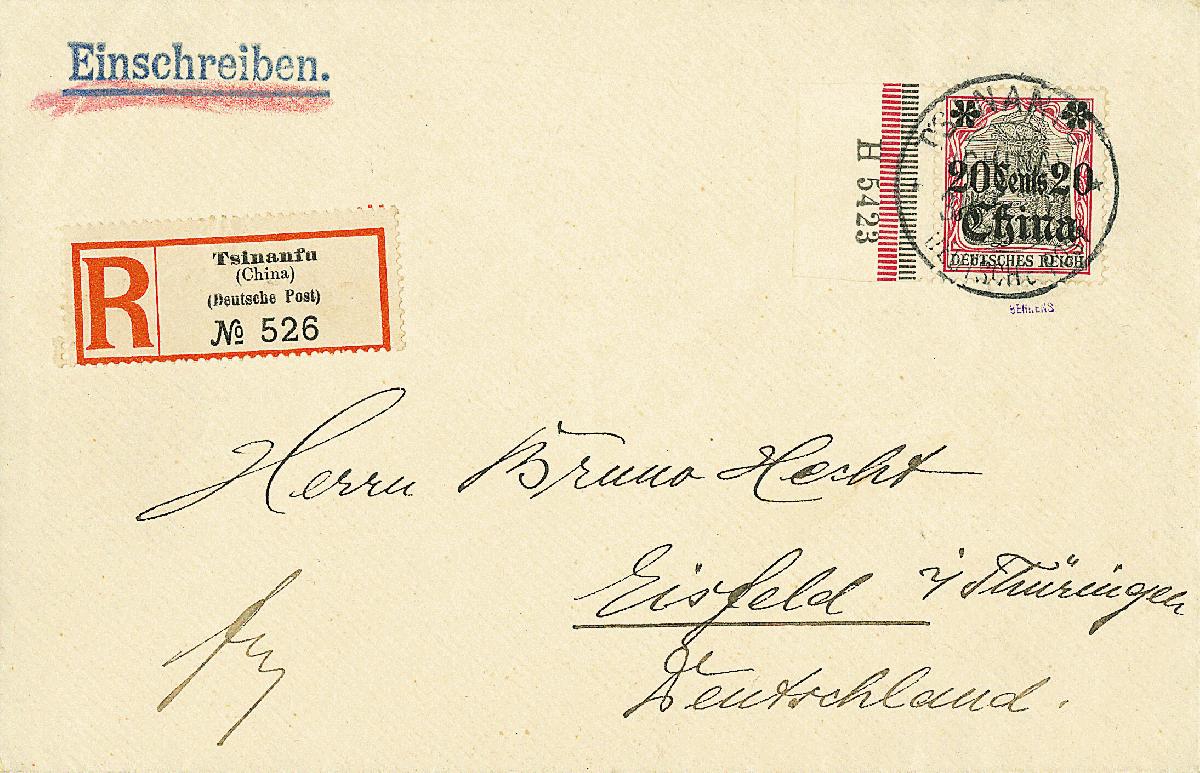 Einschreiben.
H 5423
TSINANFU
20 Cents 20
China
DEUTSCHES REICH
BEHRENS
R
Tsinanfu
(China)
(Deutsche Post)
№ 526
Herrn Bruno Hecht
Eisfeld i/Thüringen
Deutschland.